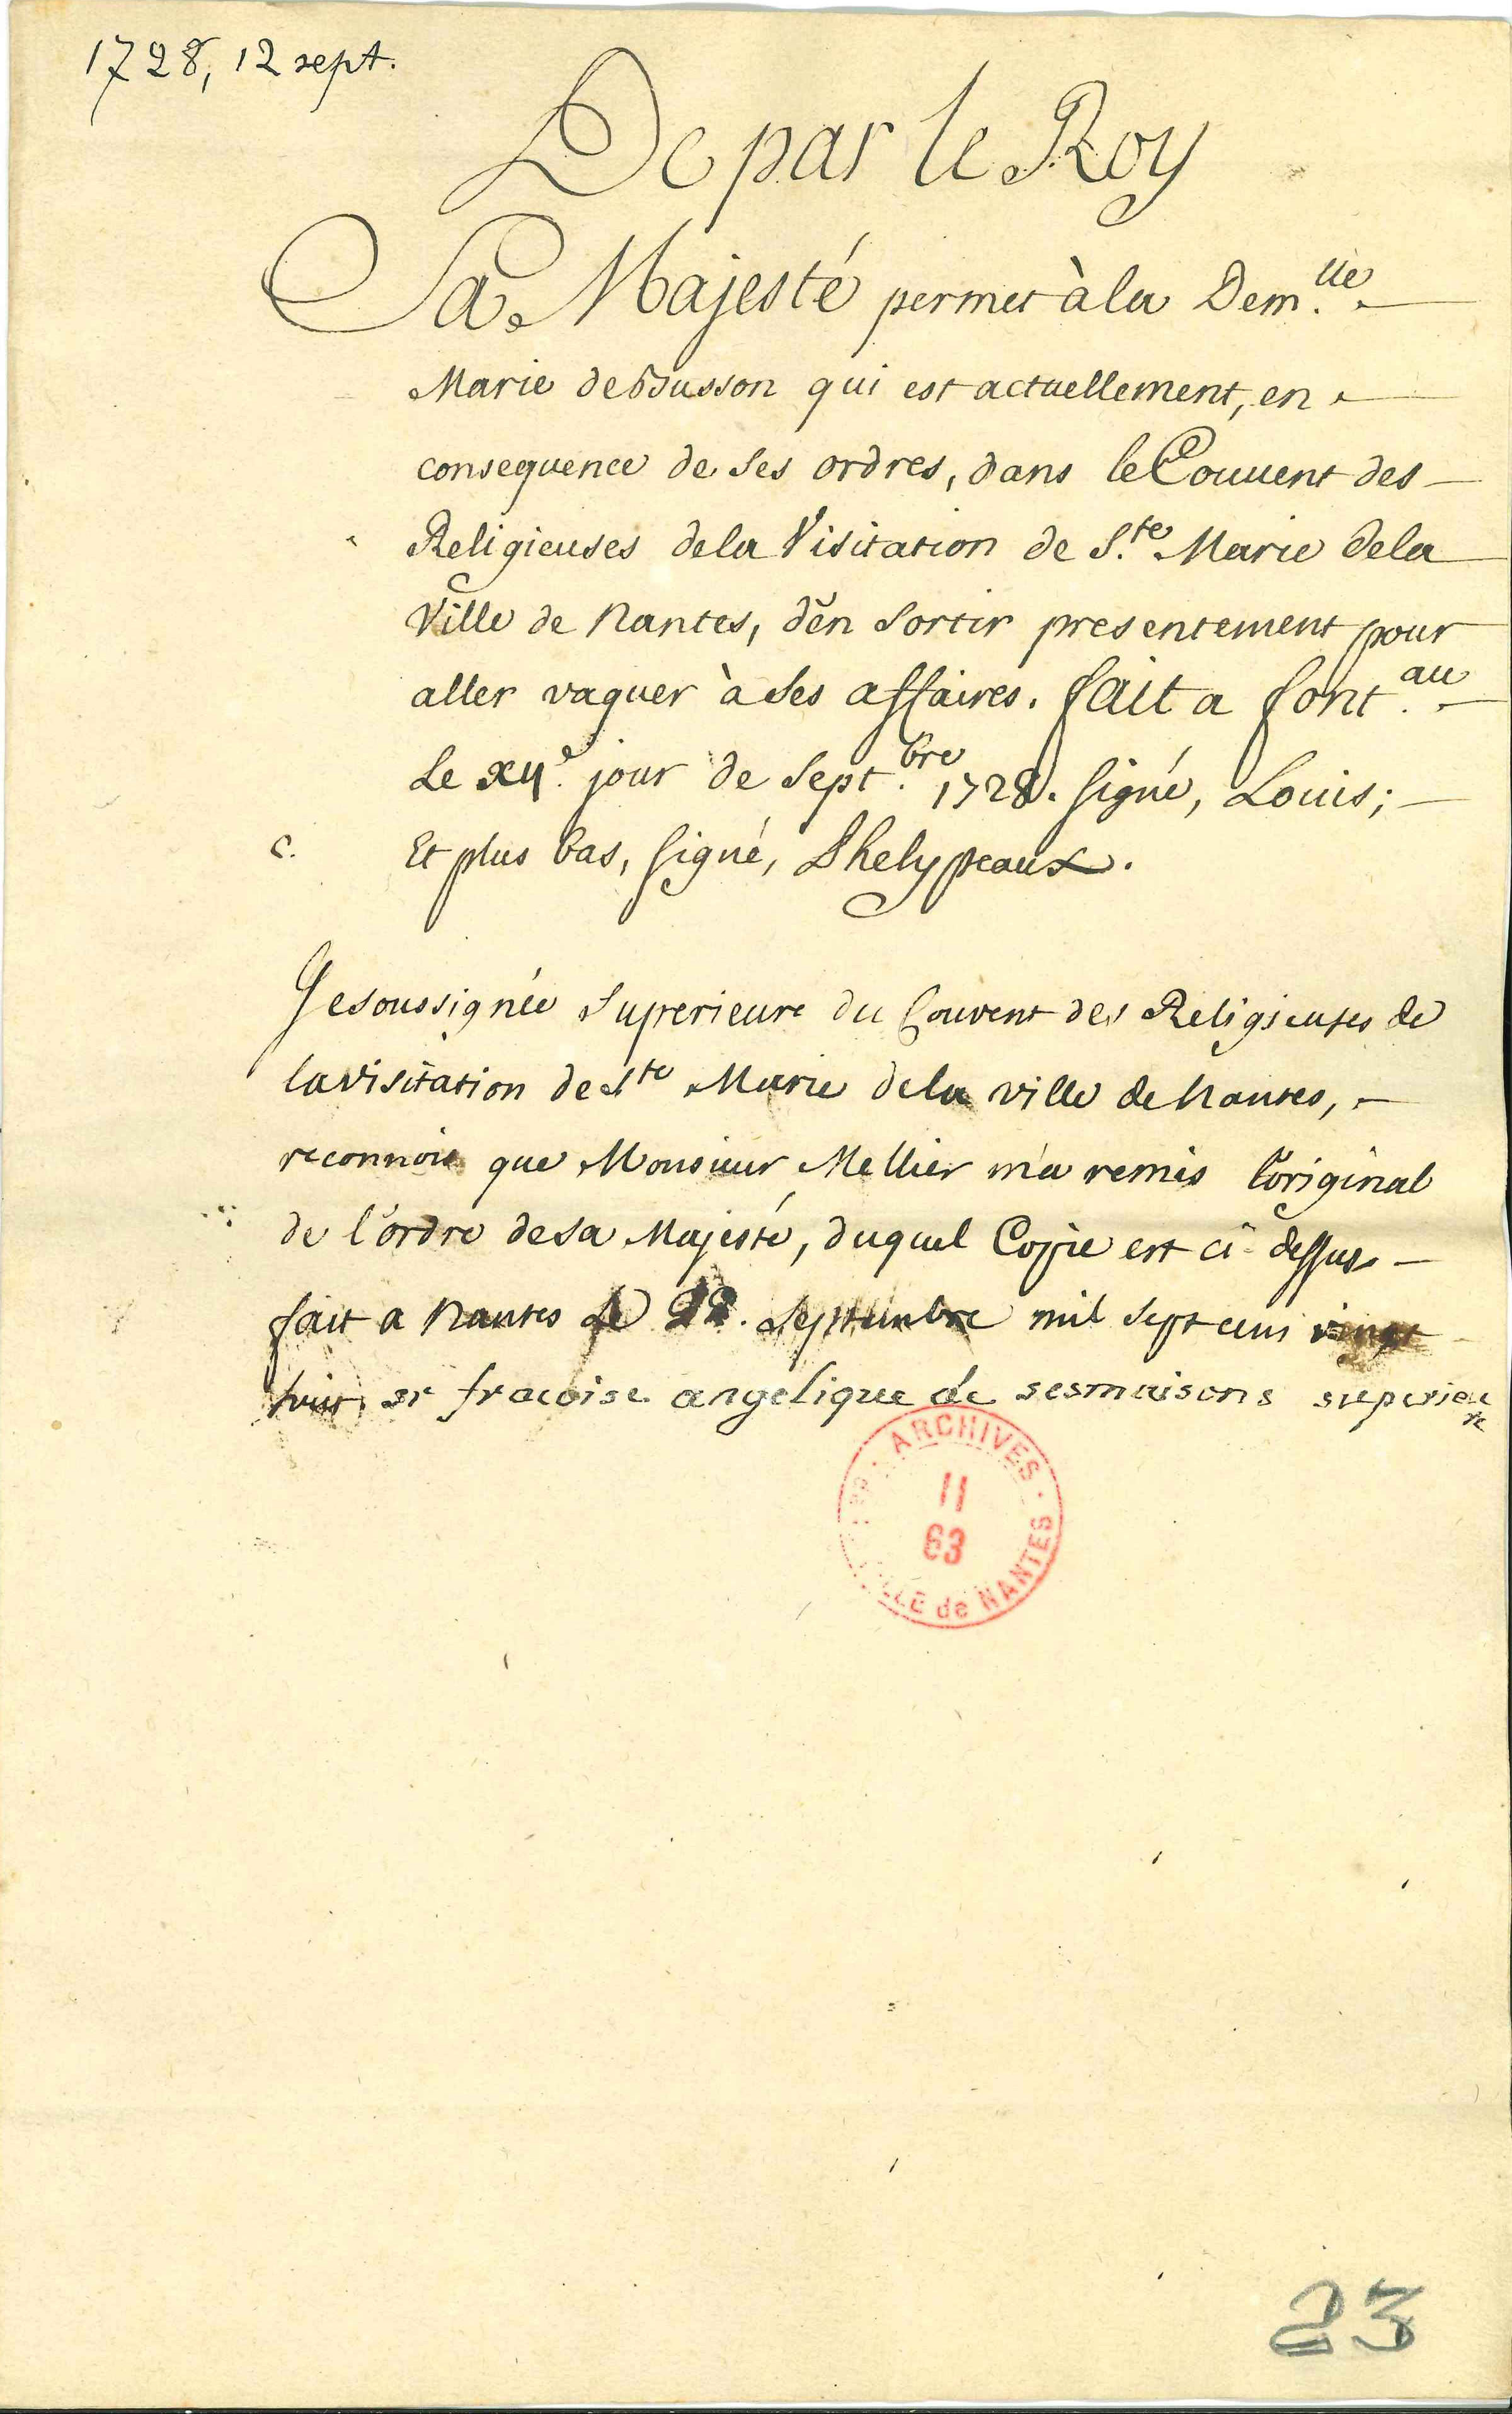 1728, 12 sept.
De par le Roy
Sa Majesté permet à la Dem.lle
Marie debusson qui est actuellement, en
consequence de ses ordres, dans le Couuent des
Religieuses dela Visitation de S.te Marie dela
Ville de Nantes, d'en sortir presentement pour
aller vaquer à ses affaires. fait a font.au
Le xij.e jour de Sept.bre 1728. signé, Louis;
c. Et plus bas, signé, Phelypeaux.
Je soussignée superieure du Couvent des Religieuses de
la visitation de Ste Marie dela ville de Nantes,
reconnois que Monsieur Mellier m'a remis l'original
de l'ordre de sa Majesté, duquel Copie est ci-dessus
fait a Nantes le 22. Septembre mil sept cens vingt
huit sr fracoise angelique de sesmaisons superieu
re
ARCHIVES
11
63
de NANTES
23